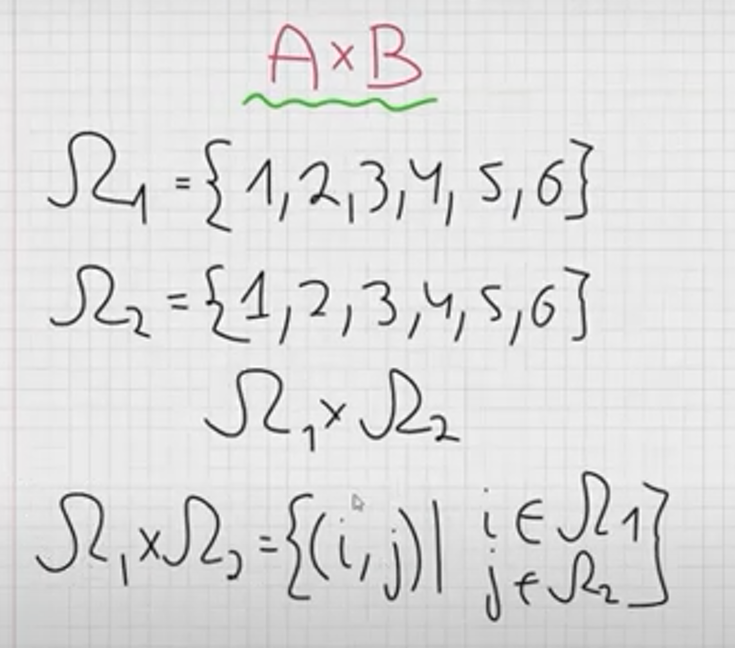 A×B
Ω₁ = {1,2,3,4,5,6}
Ω₂ = {1,2,3,4,5,6}
Ω₁×Ω₂
Ω₁×Ω₂ = {(i,j)| i∈Ω₁
j∈Ω₂}